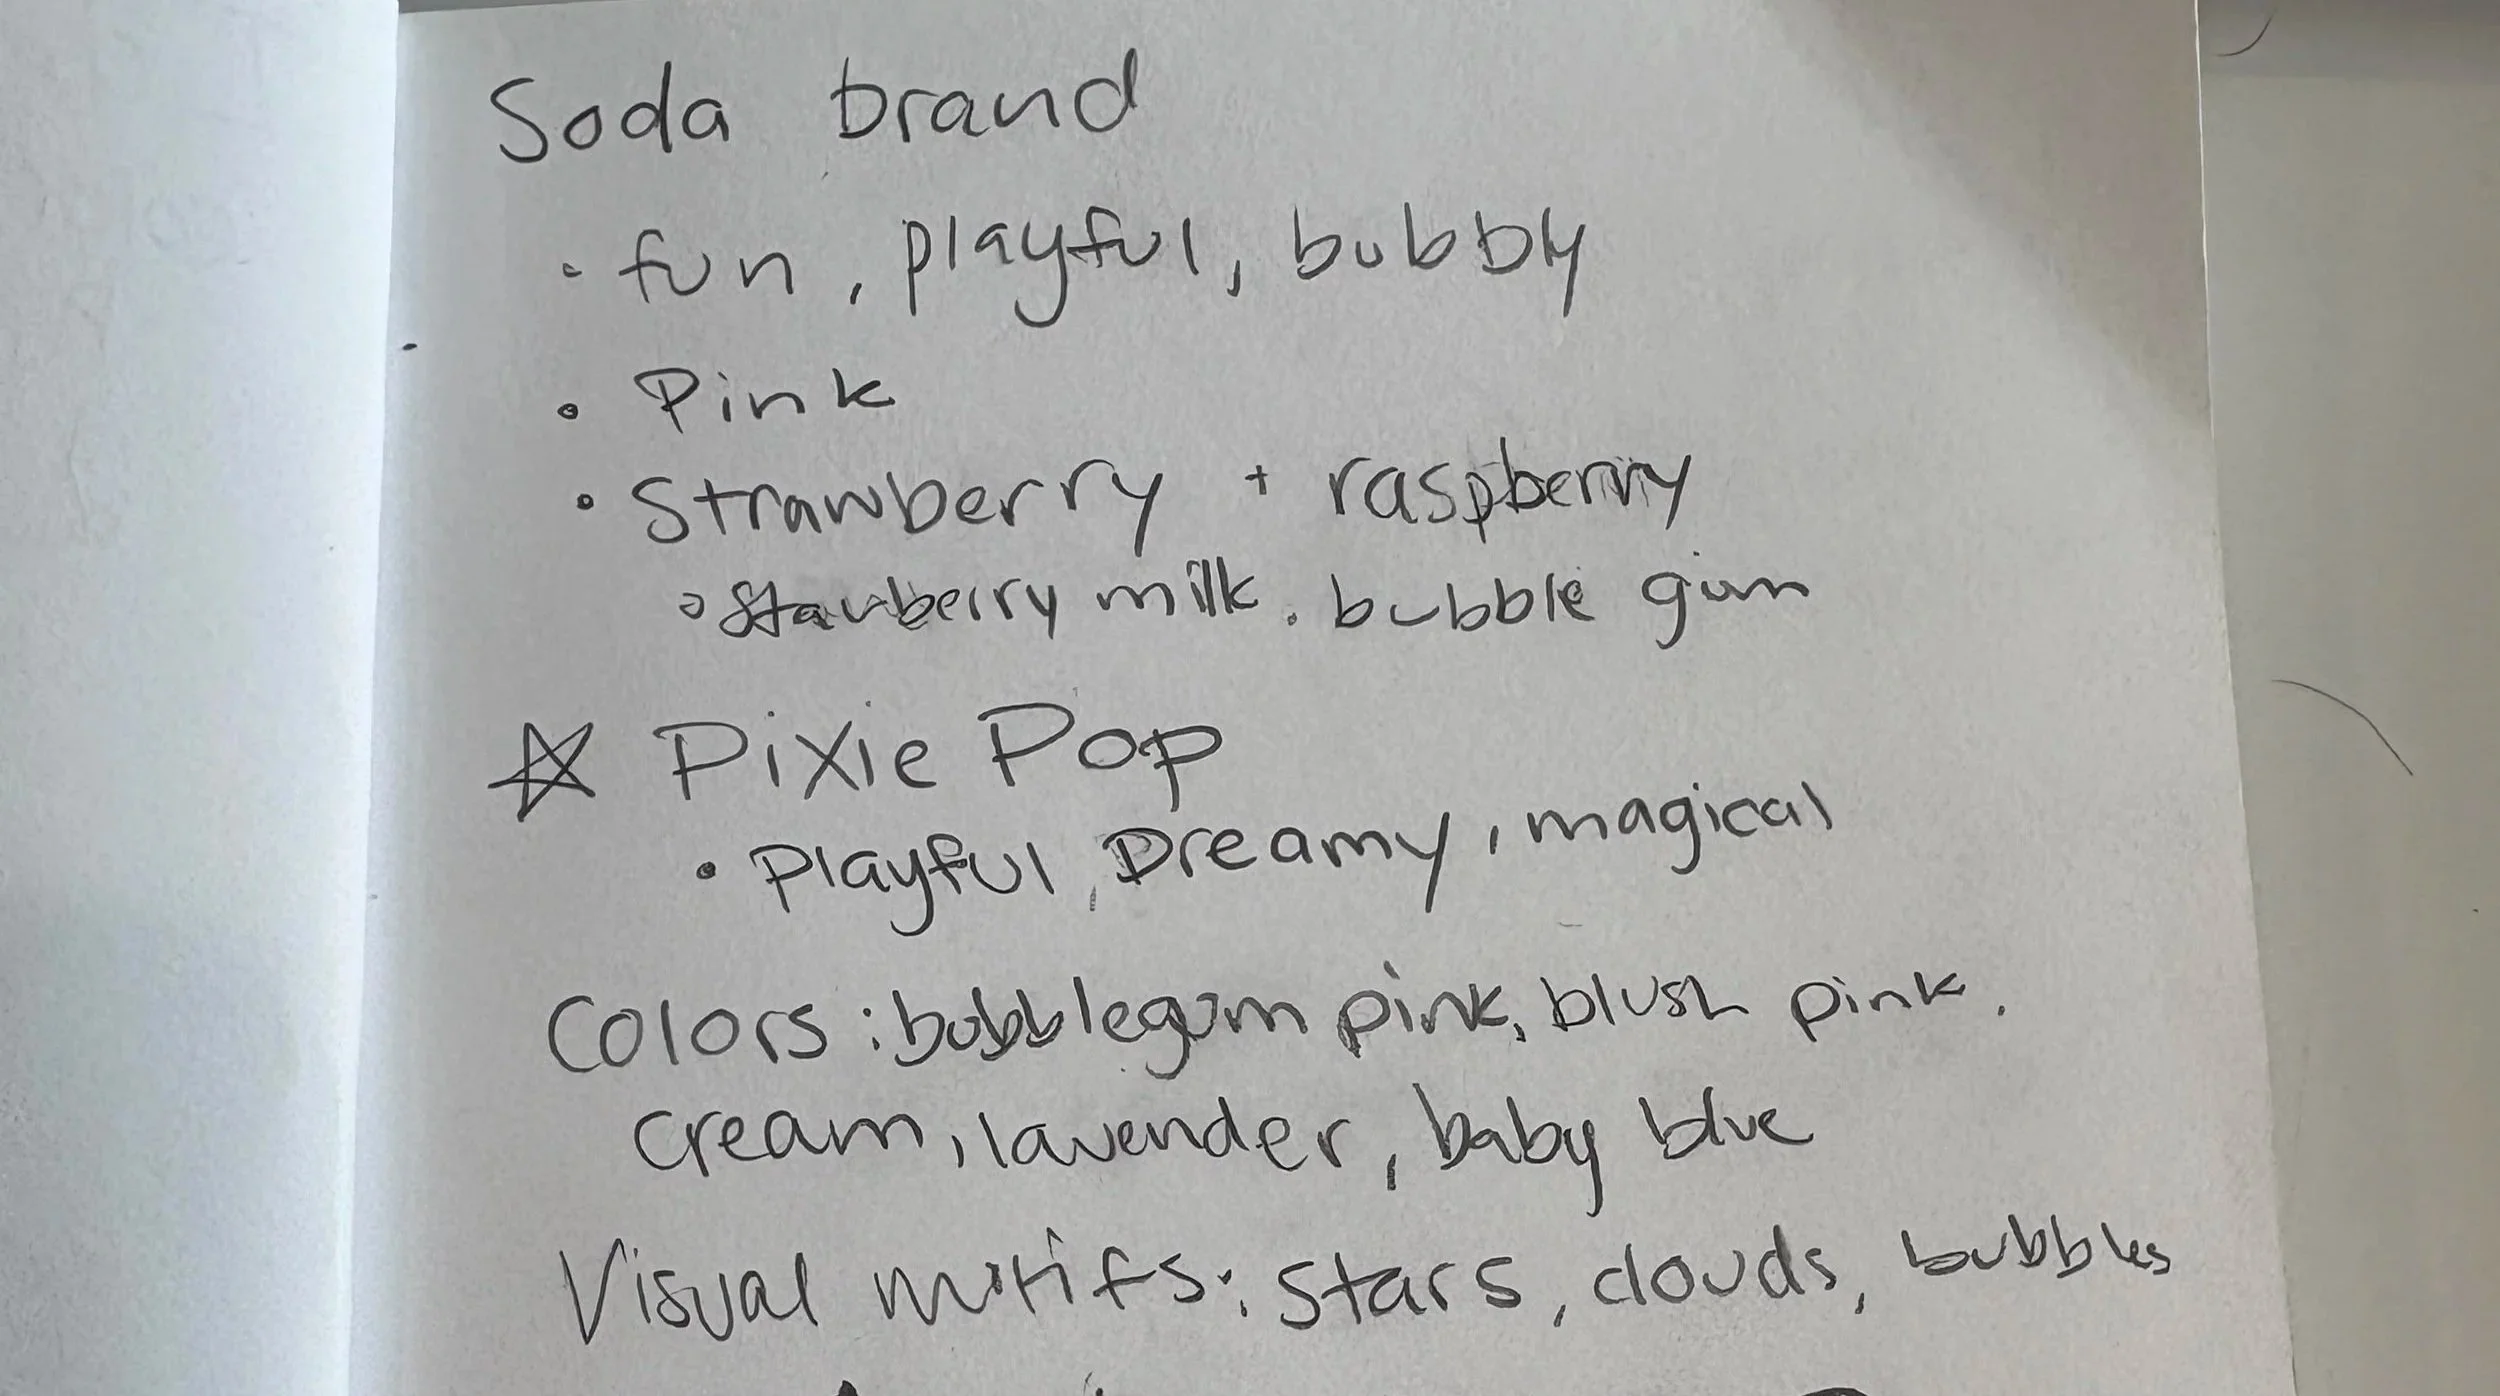 Soda brand
• fun, playful, bubbly
• Pink
• Strawberry + raspberry
◦ Stawberry milk, bubble gum
☆ Pixie Pop
• Playful, Dreamy, magical
Colors: bubblegum pink, blush pink,
cream, lavender, baby blue
Visual motifs: stars, clouds, bubbles